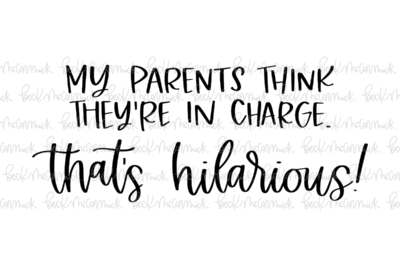 MY PARENTS THINK
THEY'RE IN CHARGE.
that's hilarious!